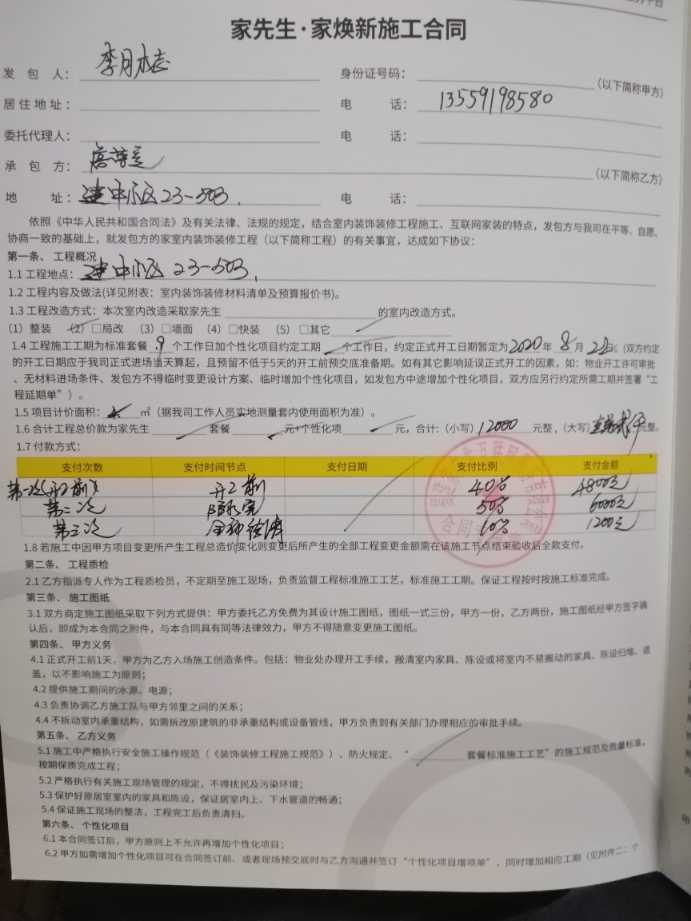 家先生·家焕新施工合同
发 包 人： 李月 身份证号码： （以下简称甲方）
居住地址： 电 话： 13559198580
委托代理人： 电 话：
承 包 方： （以下简称乙方）
地 址： 建中小区23-503. 电 话：
依照《中华人民共和国合同法》及有关法律、法规的规定，结合室内装饰装修工程施工、互联网家装的特点，发包方与我司在平等、自愿、
协商一致的基础上，就发包方的家室内装饰装修工程（以下简称工程）的有关事宜，达成如下协议：
第一条、 工程概况
1.1 工程地点： 建中小区 23-503.
1.2 工程内容及做法(详见附表：室内装饰装修材料清单及预算报价书)。
1.3 工程改造方式：本次室内改造采取家先生 的室内改造方式。
（1）整装 （2）□局改 （3）□墙面 （4）□快装 （5）□其它
1.4 工程施工工期为标准套餐 9 个工作日加个性化项目约定工期 个工作日，约定正式开工日期暂定为2020年 8 月 22 (双方约定
的开工日期应于我司正式进场当天算起，且预留不低于5天的开工前预交底准备期。如有其它影响延误正式开工的因素，如：物业开工许可审批
、无材料进场条件、发包方不得临时变更设计方案、临时增加个性化项目，如发包方中途增加个性化项目，双方应另行约定所需工期并签署“工
程延期单”）。
1.5 项目计价面积： ㎡（据我司工作人员实地测量套内使用面积为准）。
1.6 合计工程总价款为家先生 套餐 元+个性化项 元，合计：(小写) 12000 元整，(大写) 元整。
1.7 付款方式：
支付次数 支付时间节点 支付日期 支付比例 支付金额
第一次(开工前) 开工前 40% 4800元
第二次 50% 6000元
第三次 10% 1200元
1.8 若施工中因甲方项目变更所产生工程总造价变化则变更后所产生的全部工程变更金额需在该施工节点结束验收后全款支付。
第二条、 工程质检
2.1 乙方指派专人作为工程质检员，不定期至施工现场，负责监督工程标准施工工艺，标准施工工期。保证工程按时按施工标准完成。
第三条、 施工图纸
3.1 双方商定施工图纸采取下列方式提供：甲方委托乙方免费为其设计施工图纸，图纸一式三份，甲方一份，乙方两份，施工图纸经甲方签字确
认后，即成为本合同之附件，与本合同具有同等法律效力，甲方不得随意变更施工图纸。
第四条、 甲方义务
4.1 正式开工前1天，甲方为乙方入场施工创造条件。包括：物业处办理开工手续，搬清室内家具、陈设或将室内不易搬动的家具、陈设归堆、遮
盖，以不影响施工为原则；
4.2 提供施工期间的水源、电源；
4.3 负责协调乙方施工队与甲方邻里之间的关系；
4.4 不拆动室内承重结构，如需拆改原建筑的非承重结构或设备管线，甲方负责到有关部门办理相应的审批手续。
第五条、 乙方义务
5.1 施工中严格执行安全施工操作规范（《装饰装修工程施工规范》）、防火规定、“ 套餐标准施工工艺”的施工规范及质量标准，
按期保质完成工程；
5.2 严格执行有关施工现场管理的规定，不得扰民及污染环境；
5.3 保护好原居室室内的家具和陈设，保证居室内上、下水管道的畅通；
5.4 保证施工现场的整洁，工程完工后负责清扫。
第六条、 个性化项目
6.1 本合同签订后，甲方原则上不允许再增加个性化项目；
6.2 甲方如需增加个性化项目可在合同签订前、或者现场预交底时与乙方沟通并签订“个性化项目增项单”，同时增加相应工期（见附件二：个